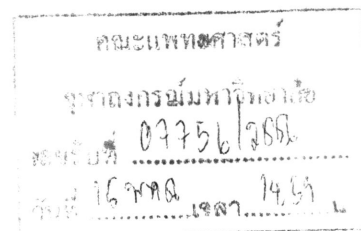 คณะแพทยศาสตร์
จุฬาลงกรณ์มหาวิทยาลัย
เลขรับที่ 07756/
วันที่ 16 เวลา 14.59